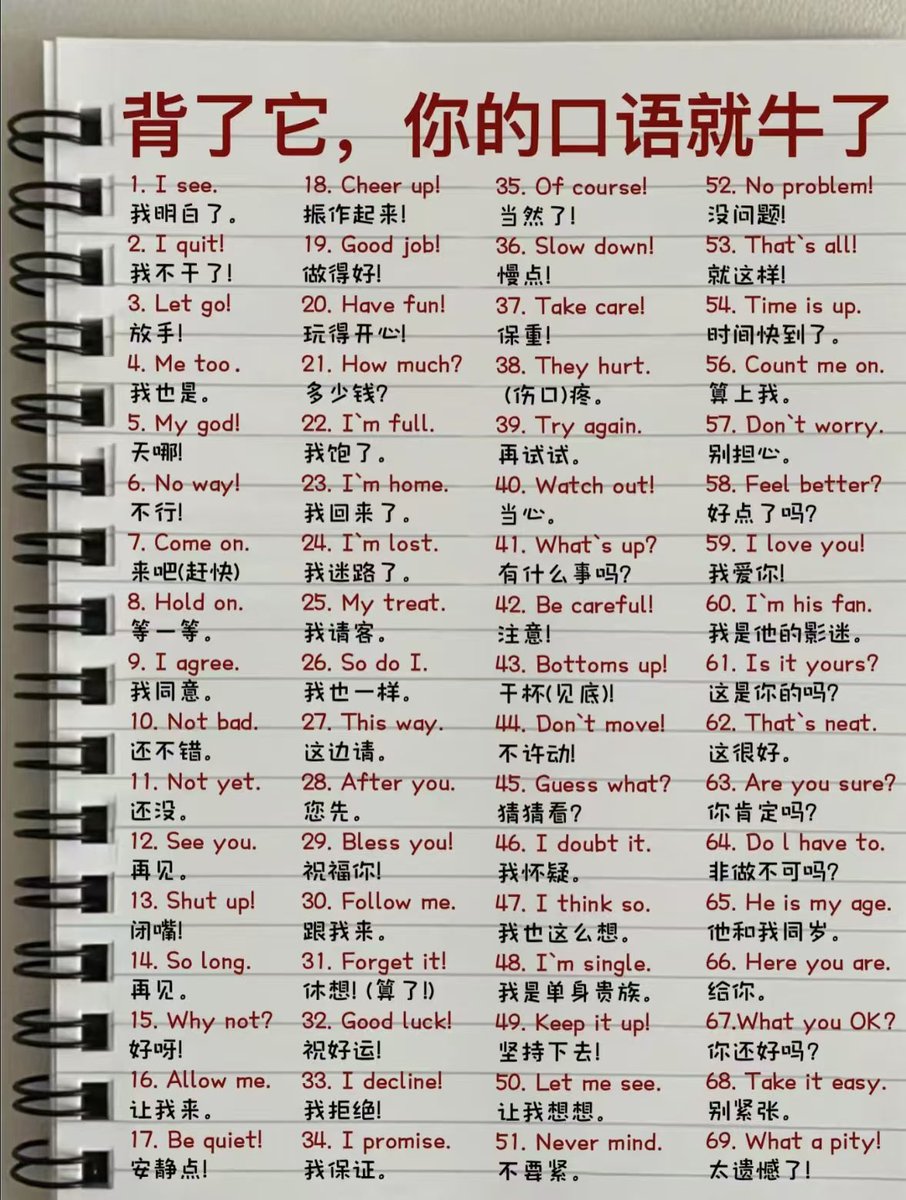 背了它，你的口语就牛了
1. I see.
我明白了。
2. I quit!
我不干了!
3. Let go!
放手!
4. Me too.
我也是。
5. My god!
天哪!
6. No way!
不行!
7. Come on.
来吧(赶快)
8. Hold on.
等一等。
9. I agree.
我同意。
10. Not bad.
还不错。
11. Not yet.
还没。
12. See you.
再见。
13. Shut up!
闭嘴!
14. So long.
再见。
15. Why not?
好呀!
16. Allow me.
让我来。
17. Be quiet!
安静点!
18. Cheer up!
振作起来!
19. Good job!
做得好!
20. Have fun!
玩得开心!
21. How much?
多少钱?
22. I`m full.
我饱了。
23. I`m home.
我回来了。
24. I`m lost.
我迷路了。
25. My treat.
我请客。
26. So do I.
我也一样。
27. This way.
这边请。
28. After you.
您先。
29. Bless you!
祝福你!
30. Follow me.
跟我来。
31. Forget it!
休想! (算了!)
32. Good luck!
祝好运!
33. I decline!
我拒绝!
34. I promise.
我保证。
35. Of course!
当然了!
36. Slow down!
慢点!
37. Take care!
保重!
38. They hurt.
(伤口)疼。
39. Try again.
再试试。
40. Watch out!
当心。
41. What`s up?
有什么事吗?
42. Be careful!
注意!
43. Bottoms up!
干杯(见底)!
44. Don`t move!
不许动!
45. Guess what?
猜猜看?
46. I doubt it.
我怀疑。
47. I think so.
我也这么想。
48. I`m single.
我是单身贵族。
49. Keep it up!
坚持下去!
50. Let me see.
让我想想。
51. Never mind.
不要紧。
52. No problem!
没问题!
53. That`s all!
就这样!
54. Time is up.
时间快到了。
56. Count me on.
算上我。
57. Don`t worry.
别担心。
58. Feel better?
好点了吗?
59. I love you!
我爱你!
60. I`m his fan.
我是他的影迷。
61. Is it yours?
这是你的吗?
62. That`s neat.
这很好。
63. Are you sure?
你肯定吗?
64. Do l have to.
非做不可吗?
65. He is my age.
他和我同岁。
66. Here you are.
给你。
67.What you OK?
你还好吗?
68. Take it easy.
别紧张。
69. What a pity!
太遗憾了!